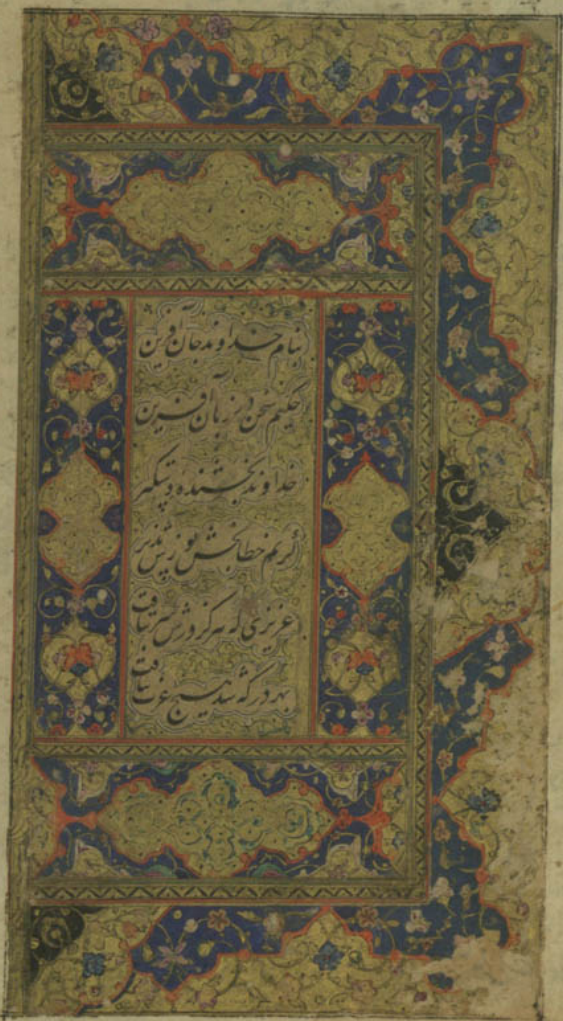 بنام خداوند جان آفرین
حکیم سخن در زبان آفرین
خداوند بخشنده دستگیر
کریم خطابخش پوزش پذیر
عزیزی که هرکز درش سر بتافت
بهر در که شد هیچ عزت نیافت